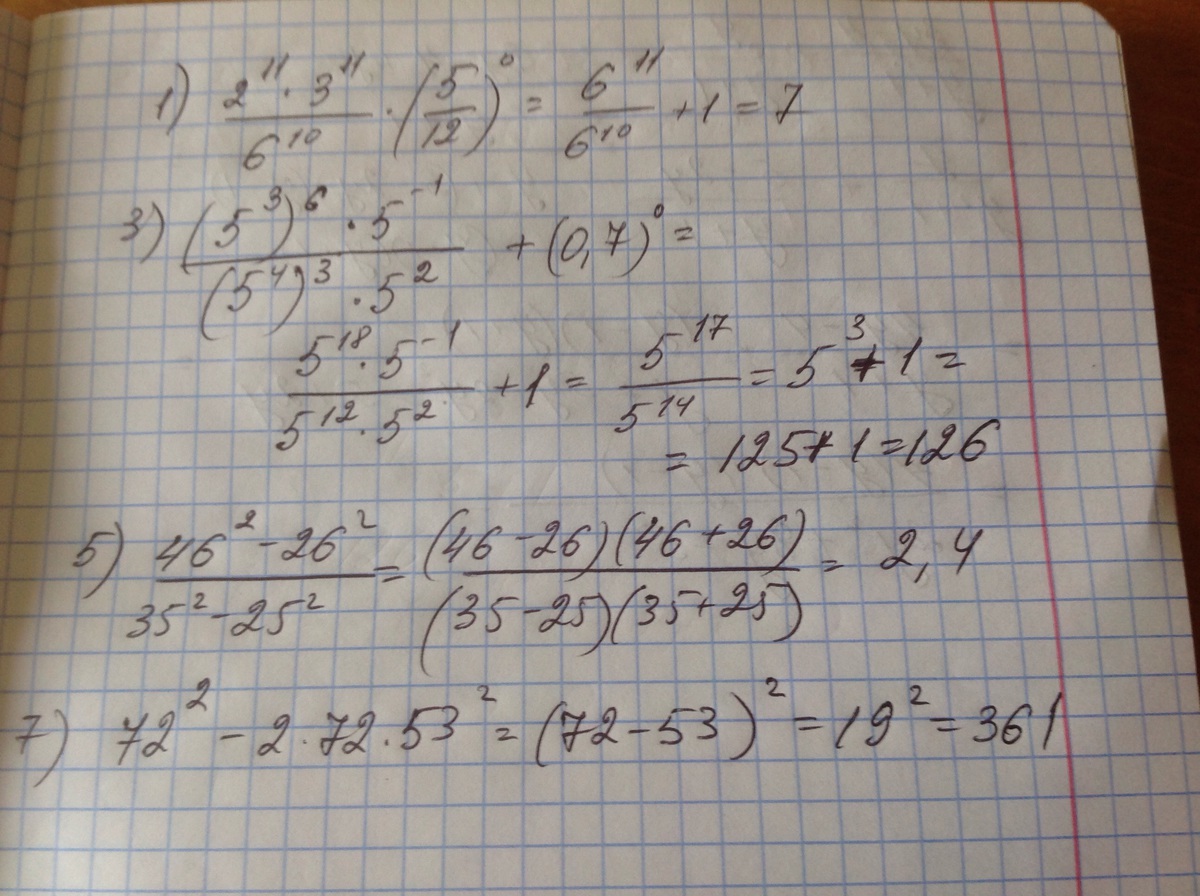 1) \frac{2^{11} · 3^{11}}{6^{10}} · (\frac{5}{12})^0 = \frac{6^{11}}{6^{10}} + 1 = 7
3) \frac{(5^3)^6 · 5^{-1}}{(5^4)^3 · 5^2} + (0,7)^0 =
\frac{5^{18} · 5^{-1}}{5^{12} · 5^2} + 1 = \frac{5^{17}}{5^{14}} = 5^3 + 1 =
= 125 + 1 = 126
5) \frac{46^2 - 26^2}{35^2 - 25^2} = \frac{(46 - 26)(46 + 26)}{(35 - 25)(35 + 25)} = 2,4
7) 72^2 - 2 · 72 · 53^2 = (72 - 53)^2 = 19^2 = 361